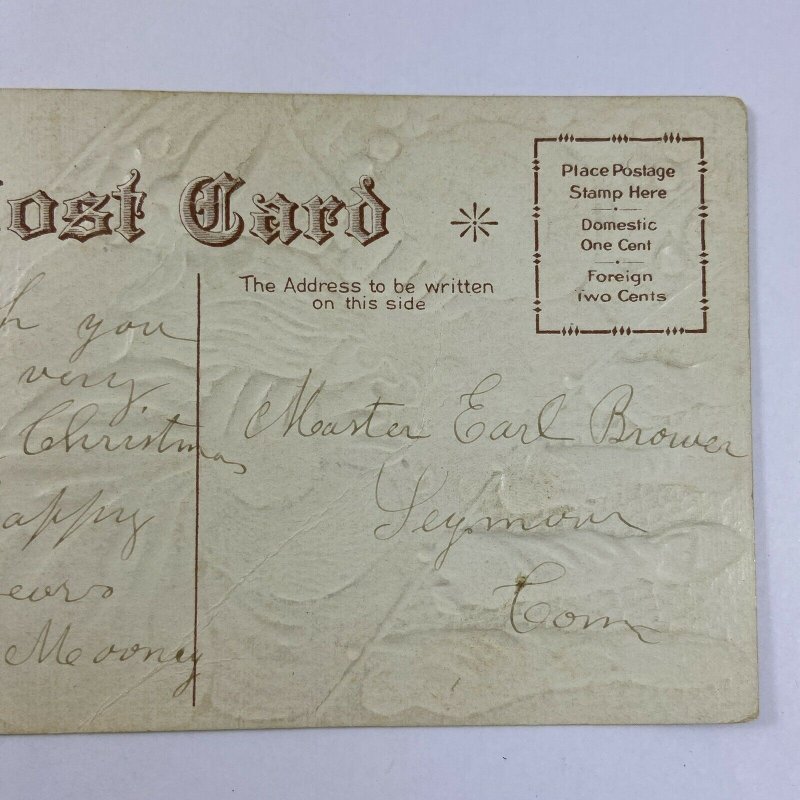 Post Card
Place Postage
Stamp Here
Domestic
One Cent
Foreign
Two Cents
The Address to be written
on this side
h you
very
Christmas
appy
ears
Mooney
Master Earl Brower
Seymour
Conn